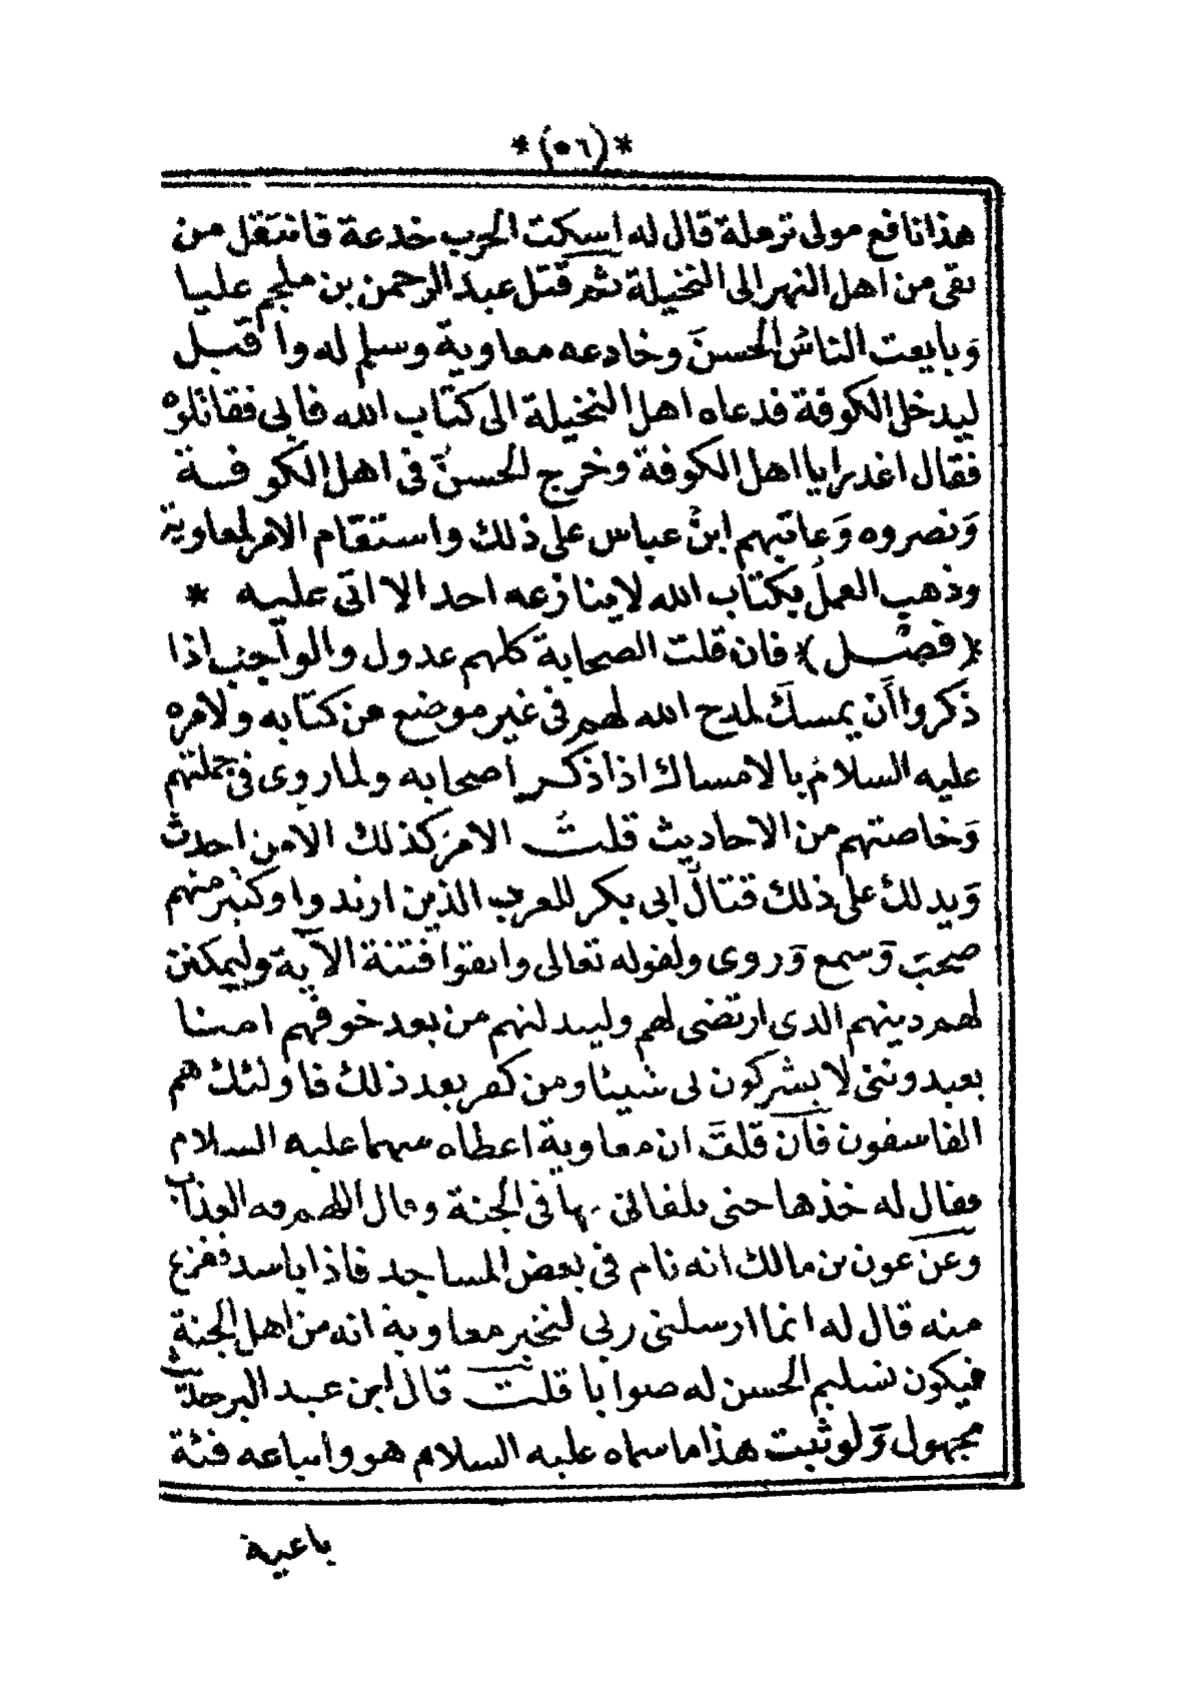 *(٥٦)*
هذا نافع مولى ترملة قال له اسكت الحرب خدعة فانتقل من
بقى من اهل النهر الى النخيلة ثم قتل عبد الرحمن بن ملجم عليا
وبايعت الناس الحسن وخادعه معاوية وسلم له واقبل
ليدخل الكوفة فدعاه اهل النخيلة الى كتاب الله فابى فقاتلوه
فقال اغدرا يا اهل الكوفة وخرج الحسن فى اهل الكوفة
ونصروه وعاتبهم ابن عباس على ذلك واستقام الامر لمعاوية
وذهب العمل بكتاب الله لا ينازعه احد الا اتى عليه *
*(فصل)* فان قلت الصحابة كلهم عدول والواجب اذا
ذكروا أن يمسك لمدح الله لهم فى غير موضع من كتابه ولامره
عليه السلام بالامساك اذا ذكر اصحابه ولما روى فى جملتهم
وخاصتهم من الاحاديث قلت الامر كذلك الا من احدث
ويدلك على ذلك قتال ابى بكر للعرب الذين ارتدوا وكثير منهم
صحب وسمع وروى ولقوله تعالى واتقوا فتنة الآية وليمكنن
لهم دينهم الذى ارتضى لهم وليبدلنهم من بعد خوفهم امنا
يعبدوننى لا يشركون بى شيئا ومن كفر بعد ذلك فاولئك هم
الفاسقون فان قلت ان معاوية اعطاه سهما عليه السلام
فقال له خذها حتى تلقانى بها فى الجنة وقال اللهم قه العذاب
وعن عون بن مالك انه نام فى بعض المساجد فاذا باسد ففزع
منه قال له انما ارسلنى ربى لتخبر معاوية انه من اهل الجنة
فيكون تسليم الحسن له صوابا قلت قال ابن عبد البر حديث
مجهول ولو ثبت هذا ما سماه عليه السلام هو واتباعه فئة
باغية